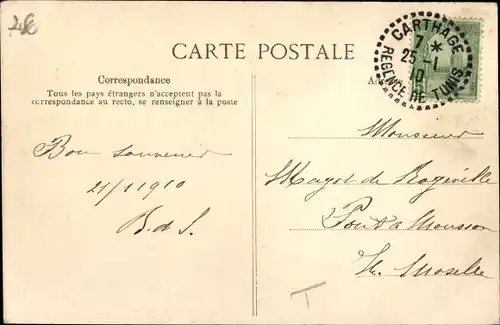 2€
CARTE POSTALE
CARTHAGE
7 *
25 -1
10
REGENCE DE TUNIS
Correspondance
Tous les pays étrangers n'acceptent pas la
correspondance au recto, se renseigner à la poste
Bon souvenir
21/1 1910
B. d S.
Monsieur
Magot de Rogéville
Pont à Mousson
Mlle
T